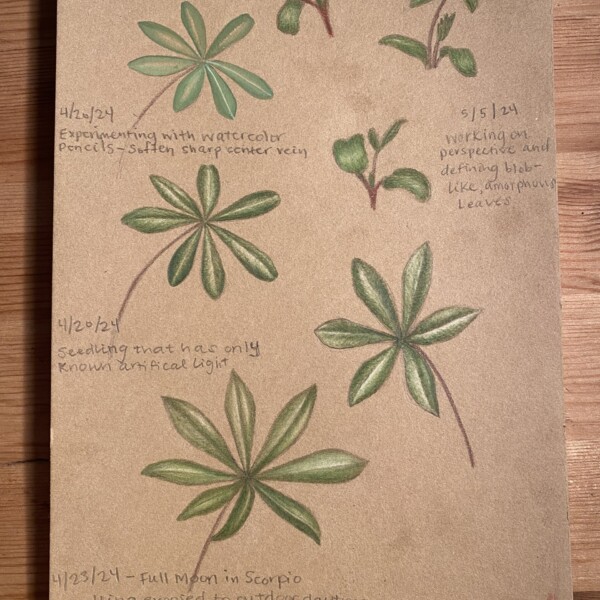 4/20/24
Experimenting with watercolor
pencils - Soften sharp center vein
5/5/24
Working on
perspective and
defining blob-
like, amorphous
Leaves
4/20/24
Seedling that has only
Known artifical Light
4/23/24 - Full Moon in Scorpio
to outdoor